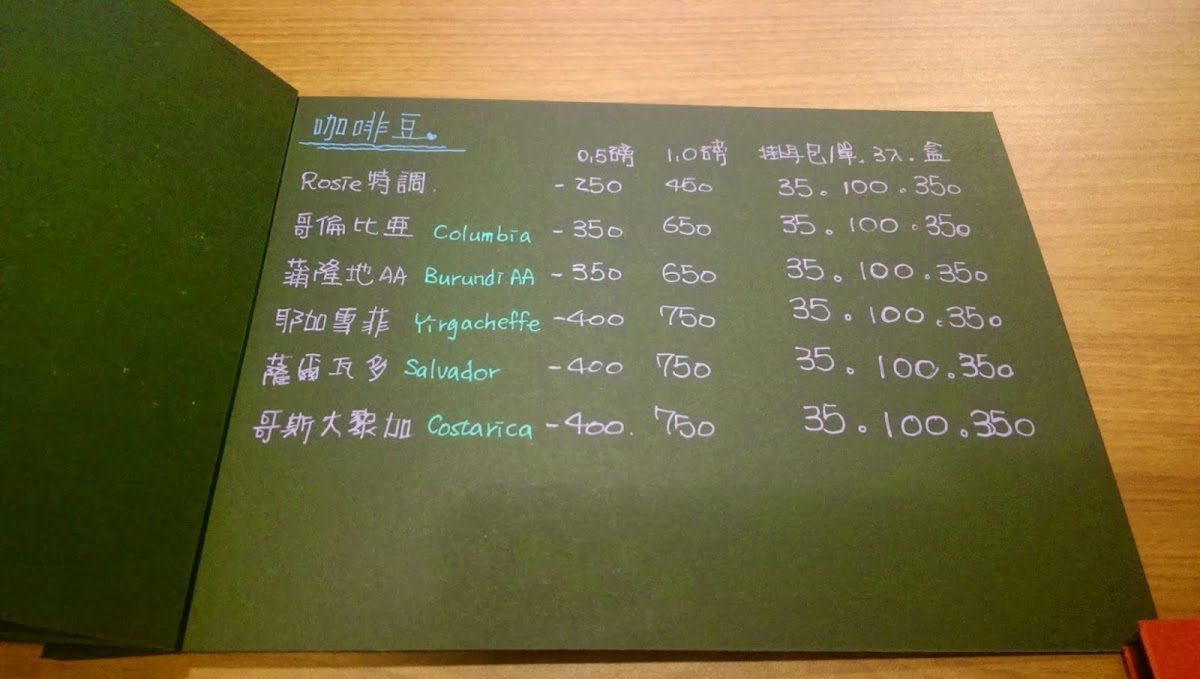 咖啡豆.
0.5磅 1.0磅 掛耳包/單.3入.盒
Rosie特調. -250 450 35.100.350
哥倫比亞 Columbia -350 650 35.100.350
蒲隆地AA Burundi AA -350 650 35.100.350
耶加雪菲 Yirgacheffe -400 750 35.100.350
薩爾瓦多 Salvador -400 750 35.100.350
哥斯大黎加 Costarica -400. 750 35.100.350